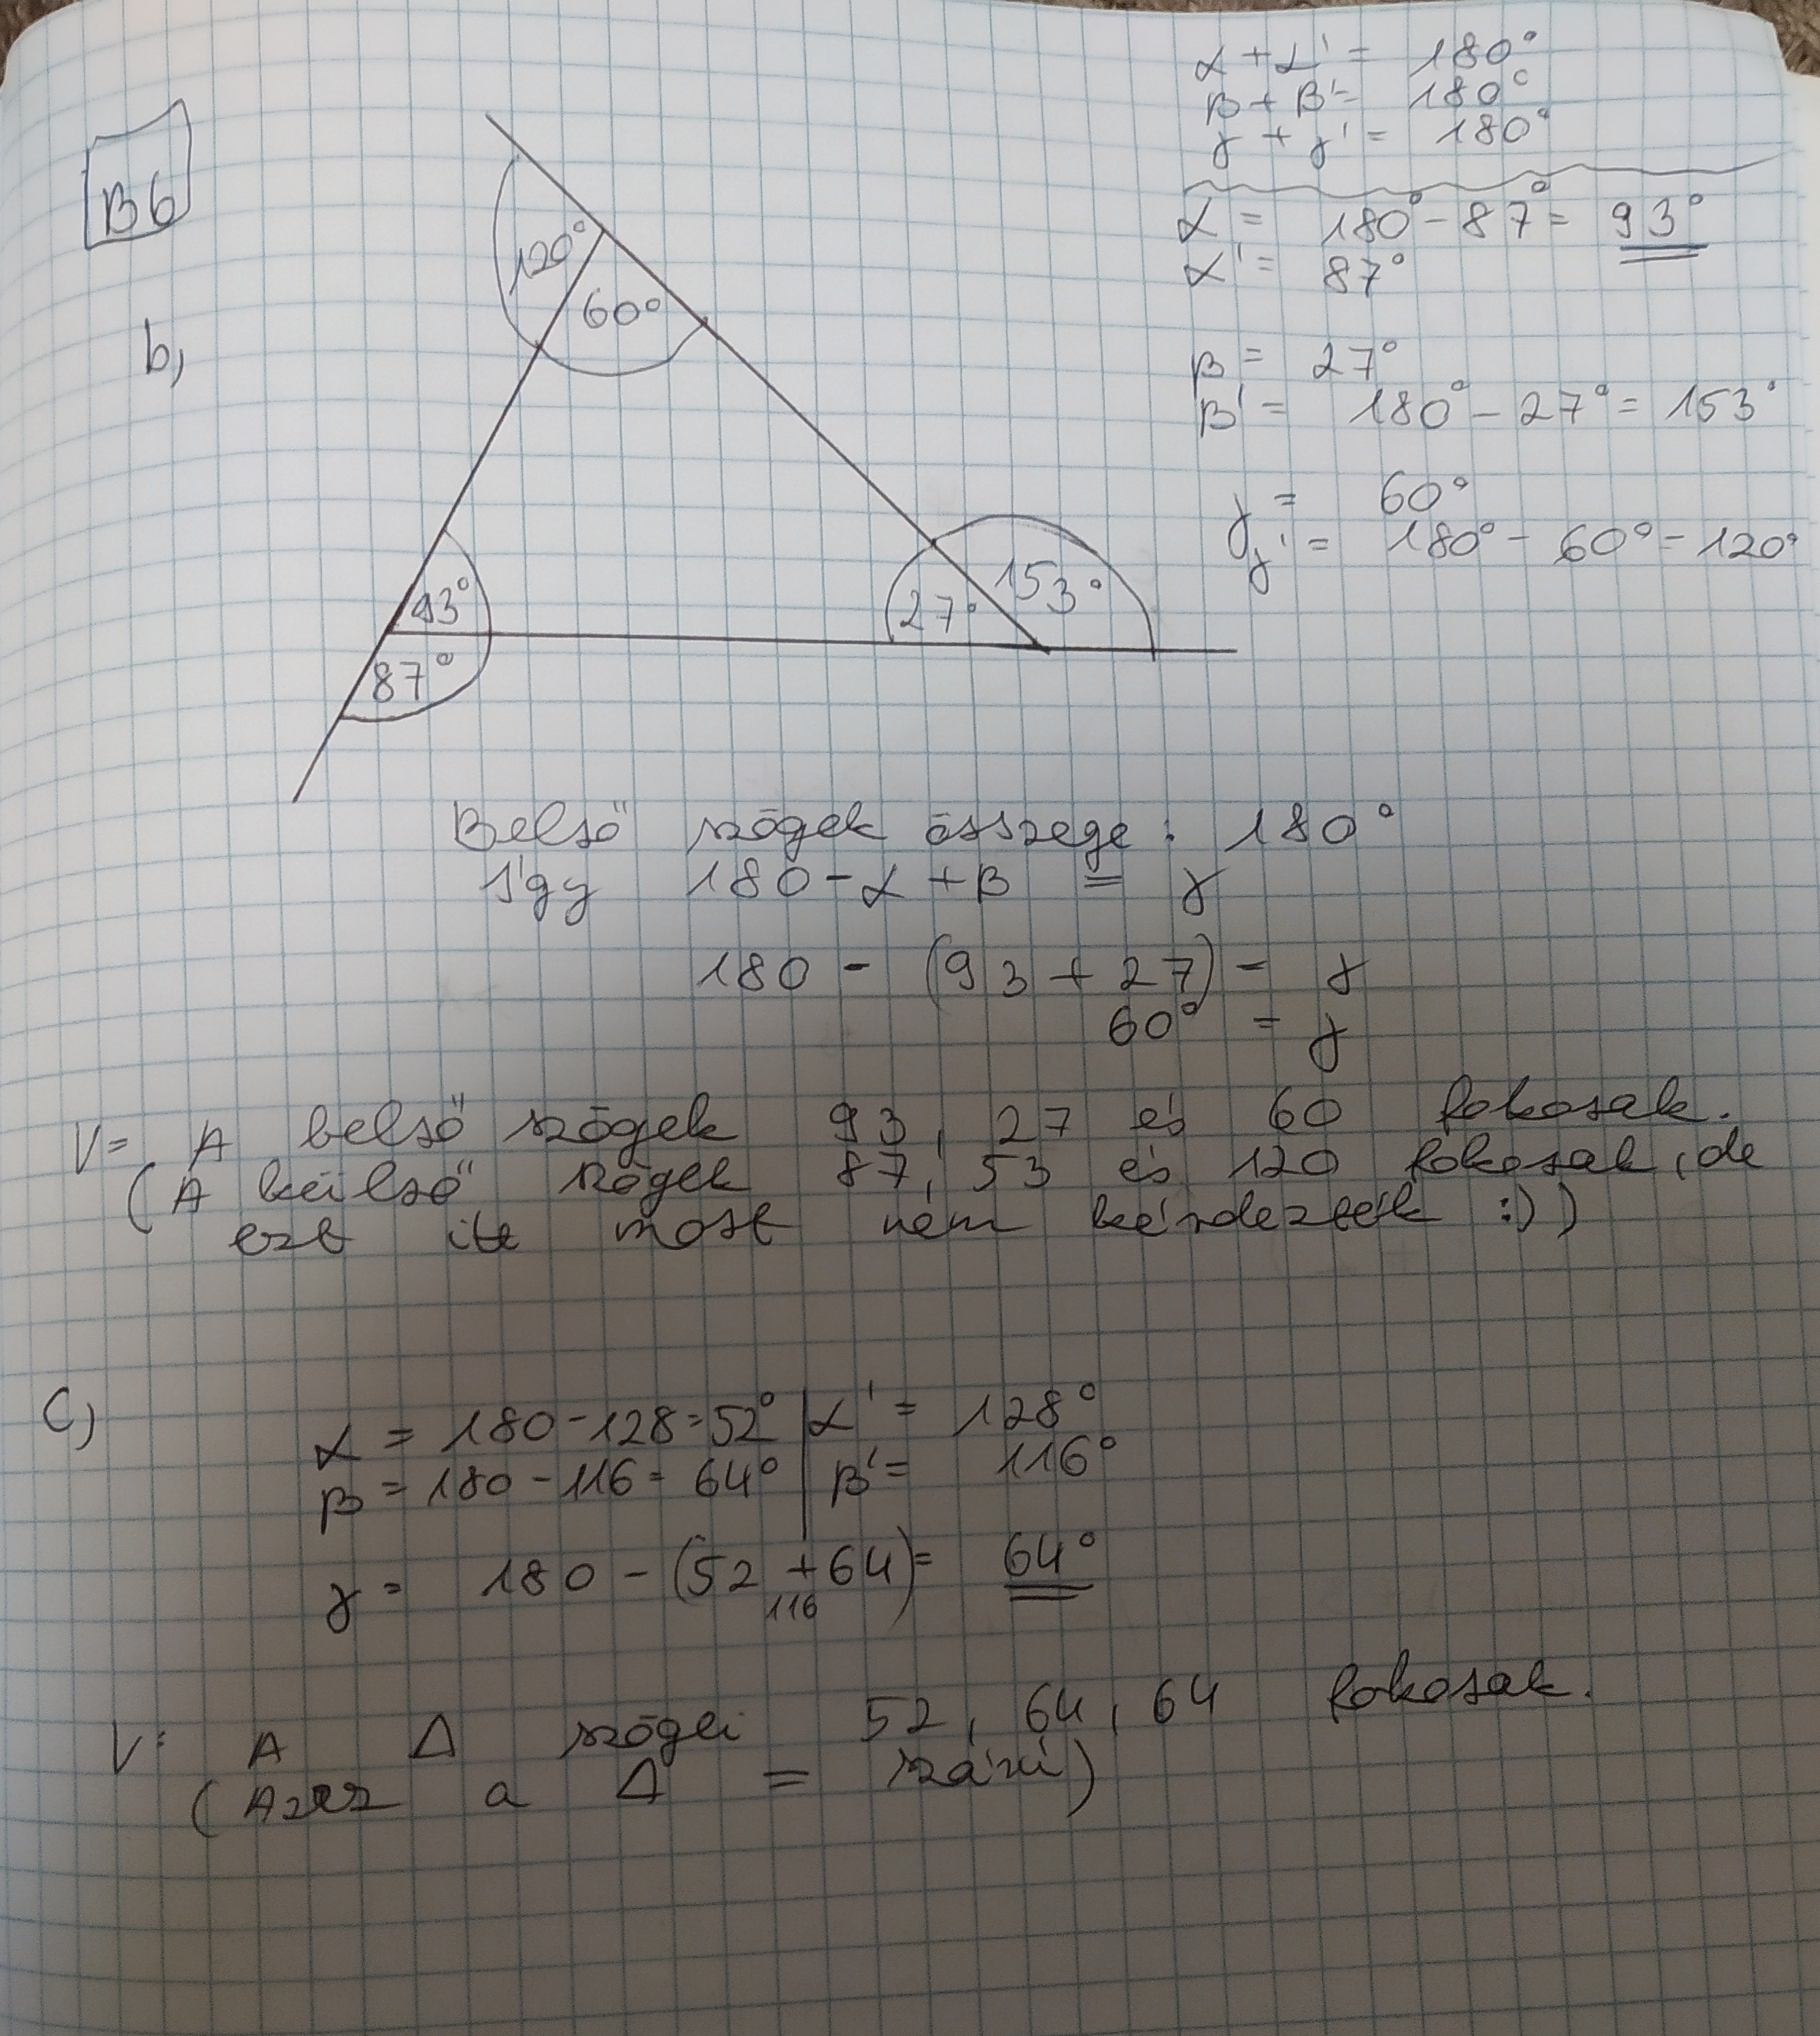 α + α' = 180°
β + β' = 180°
γ + γ' = 180°
B6
α = 180° - 87° = 93°
α' = 87°
b,
120°
60°
β = 27°
β' = 180° - 27° = 153°
γ = 60°
γ' = 180° - 60° = 120°
93°
87°
27°
153°
Belső szögek összege: 180°
Így 180 - α + β = γ
180 - (93 + 27) = γ
60° = γ
V= A belső szögek 93, 27 és 60 fokosak.
(A külső szögek 87, 53 és 120 fokosak, de
ezt itt most nem kérdezték :))
C)
α = 180 - 128 = 52° | α' = 128°
β = 180 - 116 = 64° | β' = 116°
γ = 180 - (52 + 64) = 64°
116
V: A Δ szögei 52, 64, 64 fokosak.
(Azaz a Δ = szárú)